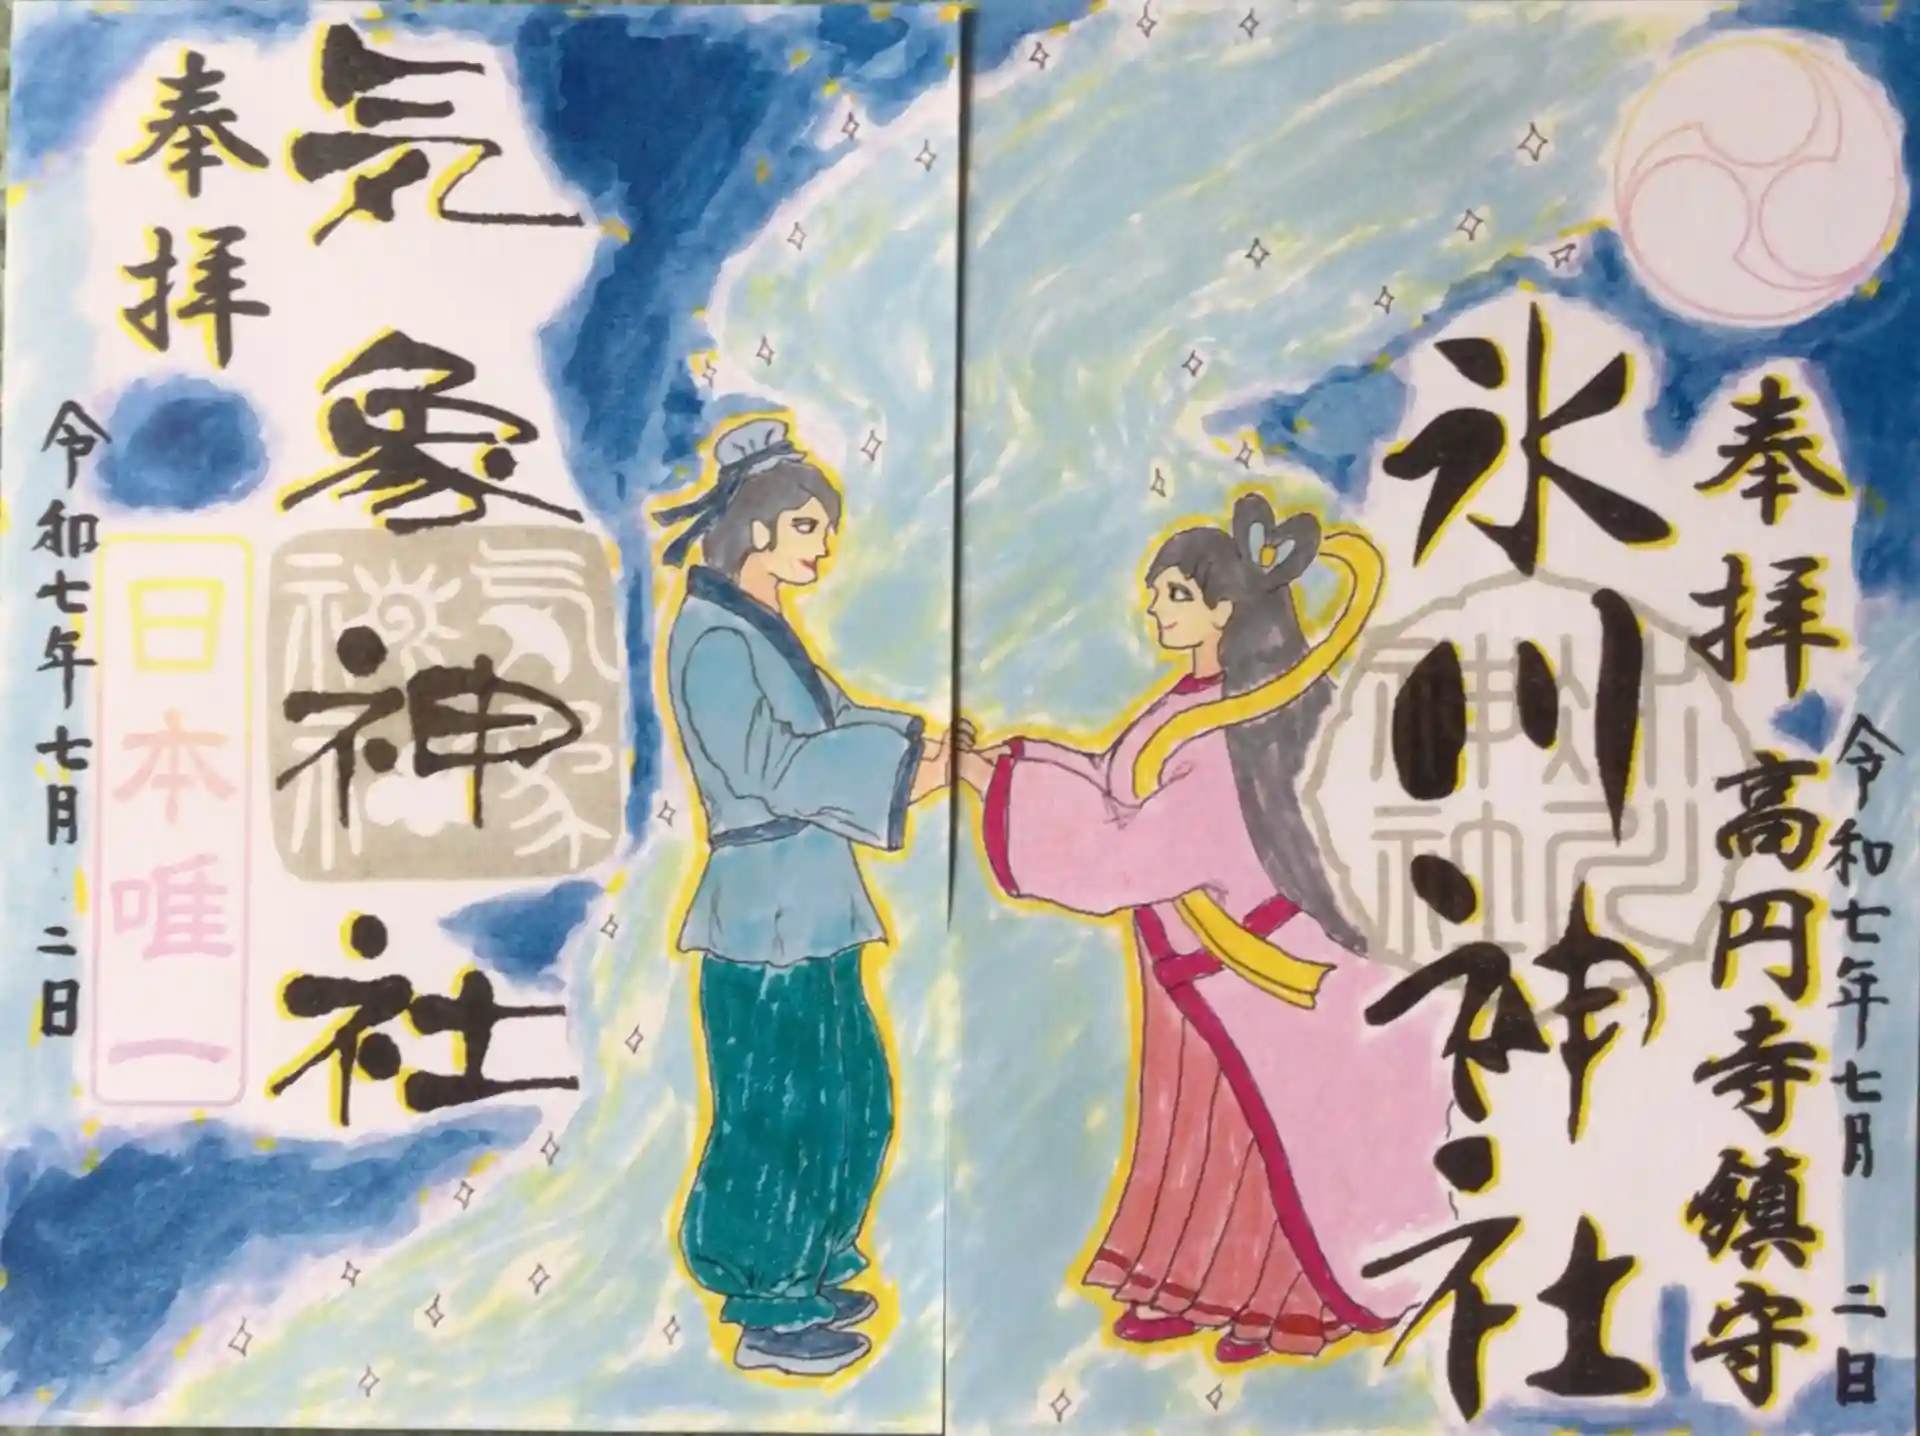 奉拝
高円寺鎮守
令和七年七月二日
氷川神社
氷川神社
気象神社
気象神社
奉拝
日本唯一
令和七年七月二日